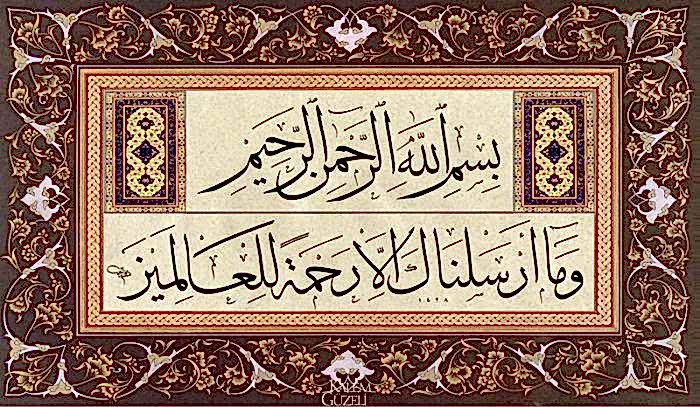 بِسْمِ ٱللَّهِ ٱلرَّحْمٰنِ ٱلرَّحِيمِ
وَمَا أَرْسَلْنَاكَ إِلَّا رَحْمَةً لِلْعَالَمِينَ
KALEM
GÜZELİ